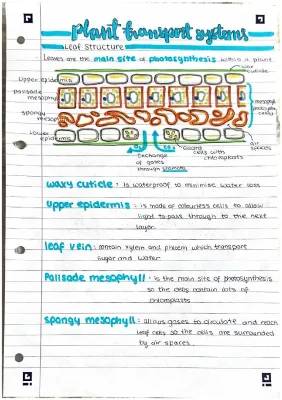 plant transport systems
Leaf structure
Leaves are the main site of photosynthesis within a plant
waxy cuticle
Upper epidermis
palisade mesophyll
spongy mesophyll
Lower epidermis
air spaces
Guard cells with chloroplasts
Exchange of gases through stomata
waxy cuticle: is waterproof to minimise water loss
upper epidermis: is made of colourless cells to allow
light to pass through to the next
layer
leaf vein: contain xylem and phloem which transport
sugar and water
Palisade mesophyll: is the main site of photosynthesis
so the cells contain lots of
chloroplasts
spongy mesophyll: allows gases to circulate and reach
leaf cells so the cells are surrounded
by air spaces.